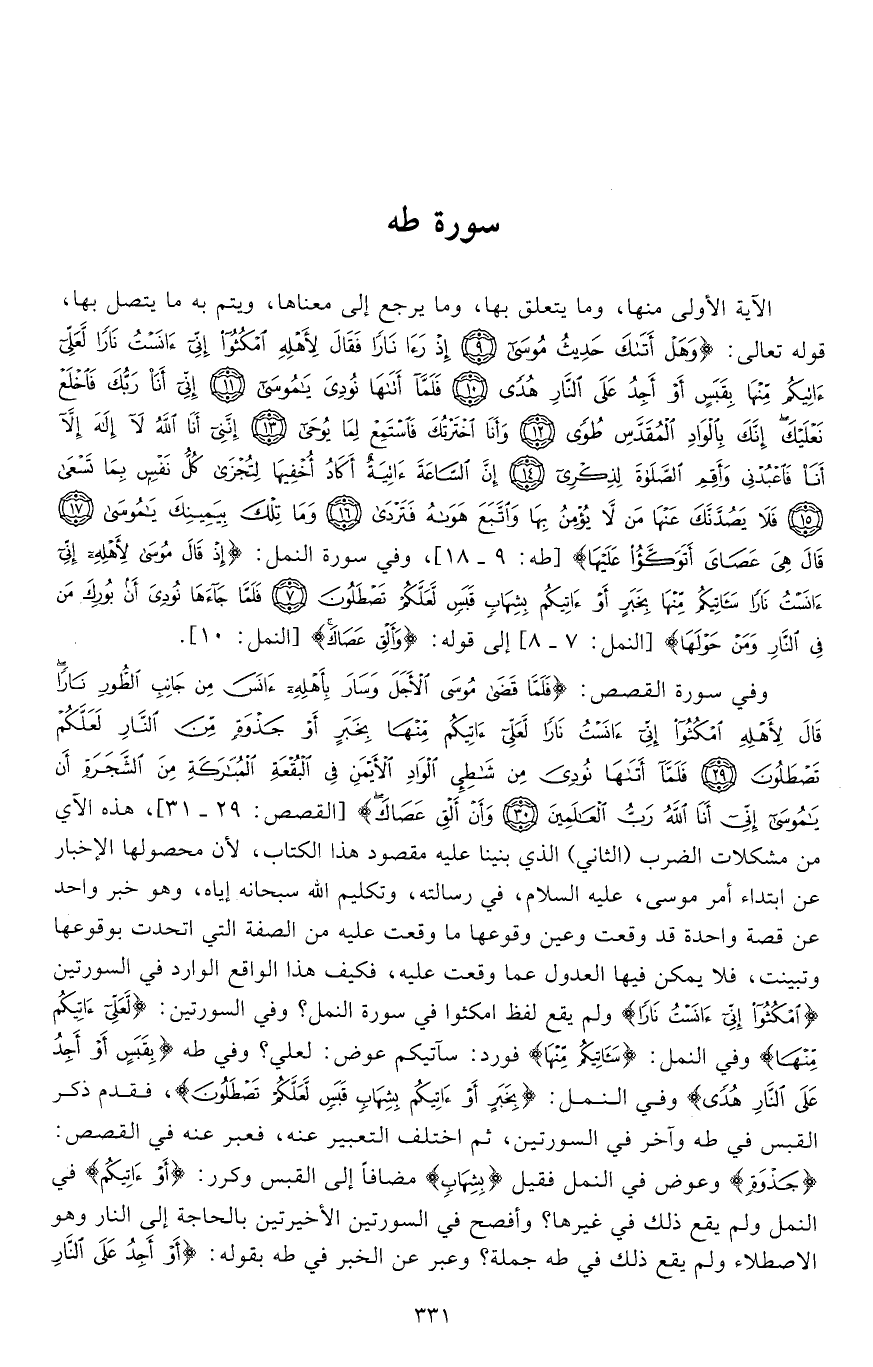 سورة طه
الآية الأولى منها، وما يتعلق بها، وما يرجع إلى معناها، ويتم به ما يتصل بها،
قوله تعالى: ﴿وَهَلْ أَتَىٰكَ حَدِيثُ مُوسَىٰٓ ۝٩ إِذْ رَءَا نَارًا فَقَالَ لِأَهْلِهِ ٱمْكُثُوٓا۟ إِنِّىٓ ءَانَسْتُ نَارًا لَّعَلِّىٓ
ءَاتِيكُم مِّنْهَا بِقَبَسٍ أَوْ أَجِدُ عَلَى ٱلنَّارِ هُدًى ۝١٠ فَلَمَّآ أَتَىٰهَا نُودِىَ يَـٰمُوسَىٰٓ ۝١١ إِنِّىٓ أَنَا۠ رَبُّكَ فَٱخْلَعْ
نَعْلَيْكَ ۖ إِنَّكَ بِٱلْوَادِ ٱلْمُقَدَّسِ طُوًى ۝١٢ وَأَنَا ٱخْتَرْتُكَ فَٱسْتَمِعْ لِمَا يُوحَىٰٓ ۝١٣ إِنَّنِىٓ أَنَا ٱللَّهُ لَآ إِلَـٰهَ إِلَّآ
أَنَا۠ فَٱعْبُدْنِى وَأَقِمِ ٱلصَّلَوٰةَ لِذِكْرِىٓ ۝١٤ إِنَّ ٱلسَّاعَةَ ءَاتِيَةٌ أَكَادُ أُخْفِيهَا لِتُجْزَىٰ كُلُّ نَفْسٍۭ بِمَا تَسْعَىٰ
۝١٥ فَلَا يَصُدَّنَّكَ عَنْهَا مَن لَّا يُؤْمِنُ بِهَا وَٱتَّبَعَ هَوَىٰهُ فَتَرْدَىٰ ۝١٦ وَمَا تِلْكَ بِيَمِينِكَ يَـٰمُوسَىٰ ۝١٧
قَالَ هِىَ عَصَاىَ أَتَوَكَّؤُا۟ عَلَيْهَا﴾ [طه: ٩ ـ ١٨]، وفي سورة النمل: ﴿إِذْ قَالَ مُوسَىٰ لِأَهْلِهِۦٓ إِنِّىٓ
ءَانَسْتُ نَارًا سَـَٔاتِيكُم مِّنْهَا بِخَبَرٍ أَوْ ءَاتِيكُم بِشِهَابٍ قَبَسٍ لَّعَلَّكُمْ تَصْطَلُونَ ۝٧ فَلَمَّا جَآءَهَا نُودِىَ أَنۢ بُورِكَ مَن
فِى ٱلنَّارِ وَمَنْ حَوْلَهَا﴾ [النمل: ٧ ـ ٨] إلى قوله: ﴿وَأَلْقِ عَصَاكَ ۚ﴾ [النمل: ١٠].
وفي سورة القصص: ﴿فَلَمَّا قَضَىٰ مُوسَى ٱلْأَجَلَ وَسَارَ بِأَهْلِهِۦٓ ءَانَسَ مِن جَانِبِ ٱلطُّورِ نَارًا ۖ
قَالَ لِأَهْلِهِ ٱمْكُثُوٓا۟ إِنِّىٓ ءَانَسْتُ نَارًا لَّعَلِّىٓ ءَاتِيكُم مِّنْهَا بِخَبَرٍ أَوْ جَذْوَةٍ مِّنَ ٱلنَّارِ لَعَلَّكُمْ
تَصْطَلُونَ ۝٢٩ فَلَمَّآ أَتَىٰهَا نُودِىَ مِن شَـٰطِئِ ٱلْوَادِ ٱلْأَيْمَنِ فِى ٱلْبُقْعَةِ ٱلْمُبَـٰرَكَةِ مِنَ ٱلشَّجَرَةِ أَن
يَـٰمُوسَىٰٓ إِنِّىٓ أَنَا ٱللَّهُ رَبُّ ٱلْعَـٰلَمِينَ ۝٣٠ وَأَنْ أَلْقِ عَصَاكَ ۖ﴾ [القصص: ٢٩ ـ ٣١]، هذه الآي
من مشكلات الضرب (الثاني) الذي بنينا عليه مقصود هذا الكتاب، لأن محصولها الإخبار
عن ابتداء أمر موسى، عليه السلام، في رسالته، وتكليم الله سبحانه إياه، وهو خبر واحد
عن قصة واحدة قد وقعت وعين وقوعها ما وقعت عليه من الصفة التي اتحدت بوقوعها
وتبينت، فلا يمكن فيها العدول عما وقعت عليه، فكيف هذا الواقع الوارد في السورتين
﴿ٱمْكُثُوٓا۟ إِنِّىٓ ءَانَسْتُ نَارًا﴾ ولم يقع لفظ امكثوا في سورة النمل؟ وفي السورتين: ﴿لَّعَلِّىٓ ءَاتِيكُم
مِّنْهَا﴾ وفي النمل: ﴿سَـَٔاتِيكُم مِّنْهَا﴾ فورد: سآتيكم عوض: لعلي؟ وفي طه ﴿بِقَبَسٍ أَوْ أَجِدُ
عَلَى ٱلنَّارِ هُدًى﴾ وفي النمل: ﴿بِخَبَرٍ أَوْ ءَاتِيكُم بِشِهَابٍ قَبَسٍ لَّعَلَّكُمْ تَصْطَلُونَ﴾، فقدم ذكر
القبس في طه وآخر في السورتين، ثم اختلف التعبير عنه، فعبر عنه في القصص:
﴿جَذْوَةٍ﴾ وعوض في النمل فقيل ﴿بِشِهَابٍ﴾ مضافاً إلى القبس وكرر: ﴿أَوْ ءَاتِيكُم﴾ في
النمل ولم يقع ذلك في غيرها؟ وأفصح في السورتين الأخيرتين بالحاجة إلى النار وهو
الاصطلاء ولم يقع ذلك في طه جملة؟ وعبر عن الخبر في طه بقوله: ﴿أَوْ أَجِدُ عَلَى ٱلنَّارِ
٣٣١